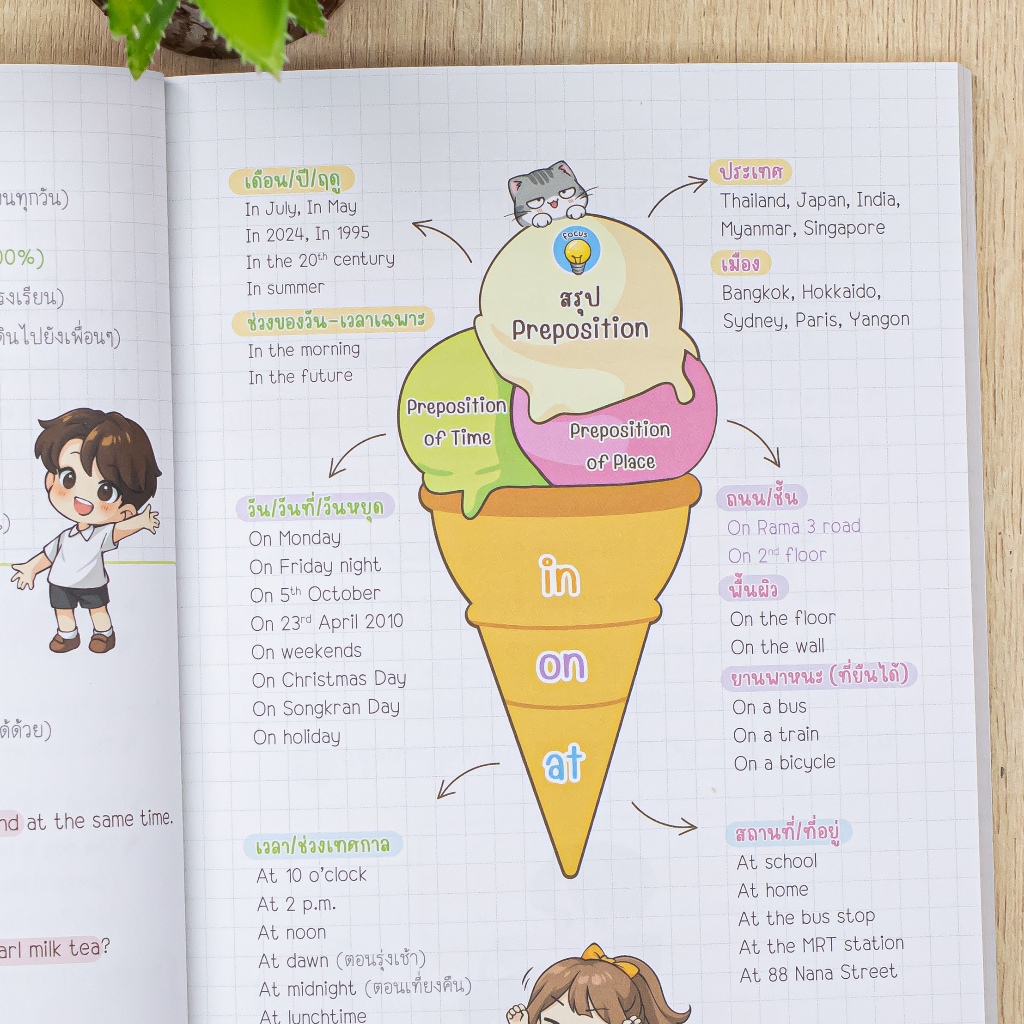 นทุกวัน)
00%)
รงเรียน)
ดินไปยังเพื่อนๆ)
ด้ด้วย)
nd at the same time.
arl milk tea?
เดือน/ปี/ฤดู
In July, In May
In 2024, In 1995
In the 20th century
In summer
ช่วงของวัน-เวลาเฉพาะ
In the morning
In the future
focus
สรุป
Preposition
Preposition
of Time
Preposition
of Place
ประเทศ
Thailand, Japan, India,
Myanmar, Singapore
เมือง
Bangkok, Hokkaido,
Sydney, Paris, Yangon
in
on
at
วัน/วันที่/วันหยุด
On Monday
On Friday night
On 5th October
On 23rd April 2010
On weekends
On Christmas Day
On Songkran Day
On holiday
ถนน/ชั้น
On Rama 3 road
On 2nd floor
พื้นผิว
On the floor
On the wall
ยานพาหนะ (ที่ยืนได้)
On a bus
On a train
On a bicycle
เวลา/ช่วงเทศกาล
At 10 o'clock
At 2 p.m.
At noon
At dawn (ตอนรุ่งเช้า)
At midnight (ตอนเที่ยงคืน)
At lunchtime
สถานที่/ที่อยู่
At school
At home
At the bus stop
At the MRT station
At 88 Nana Street